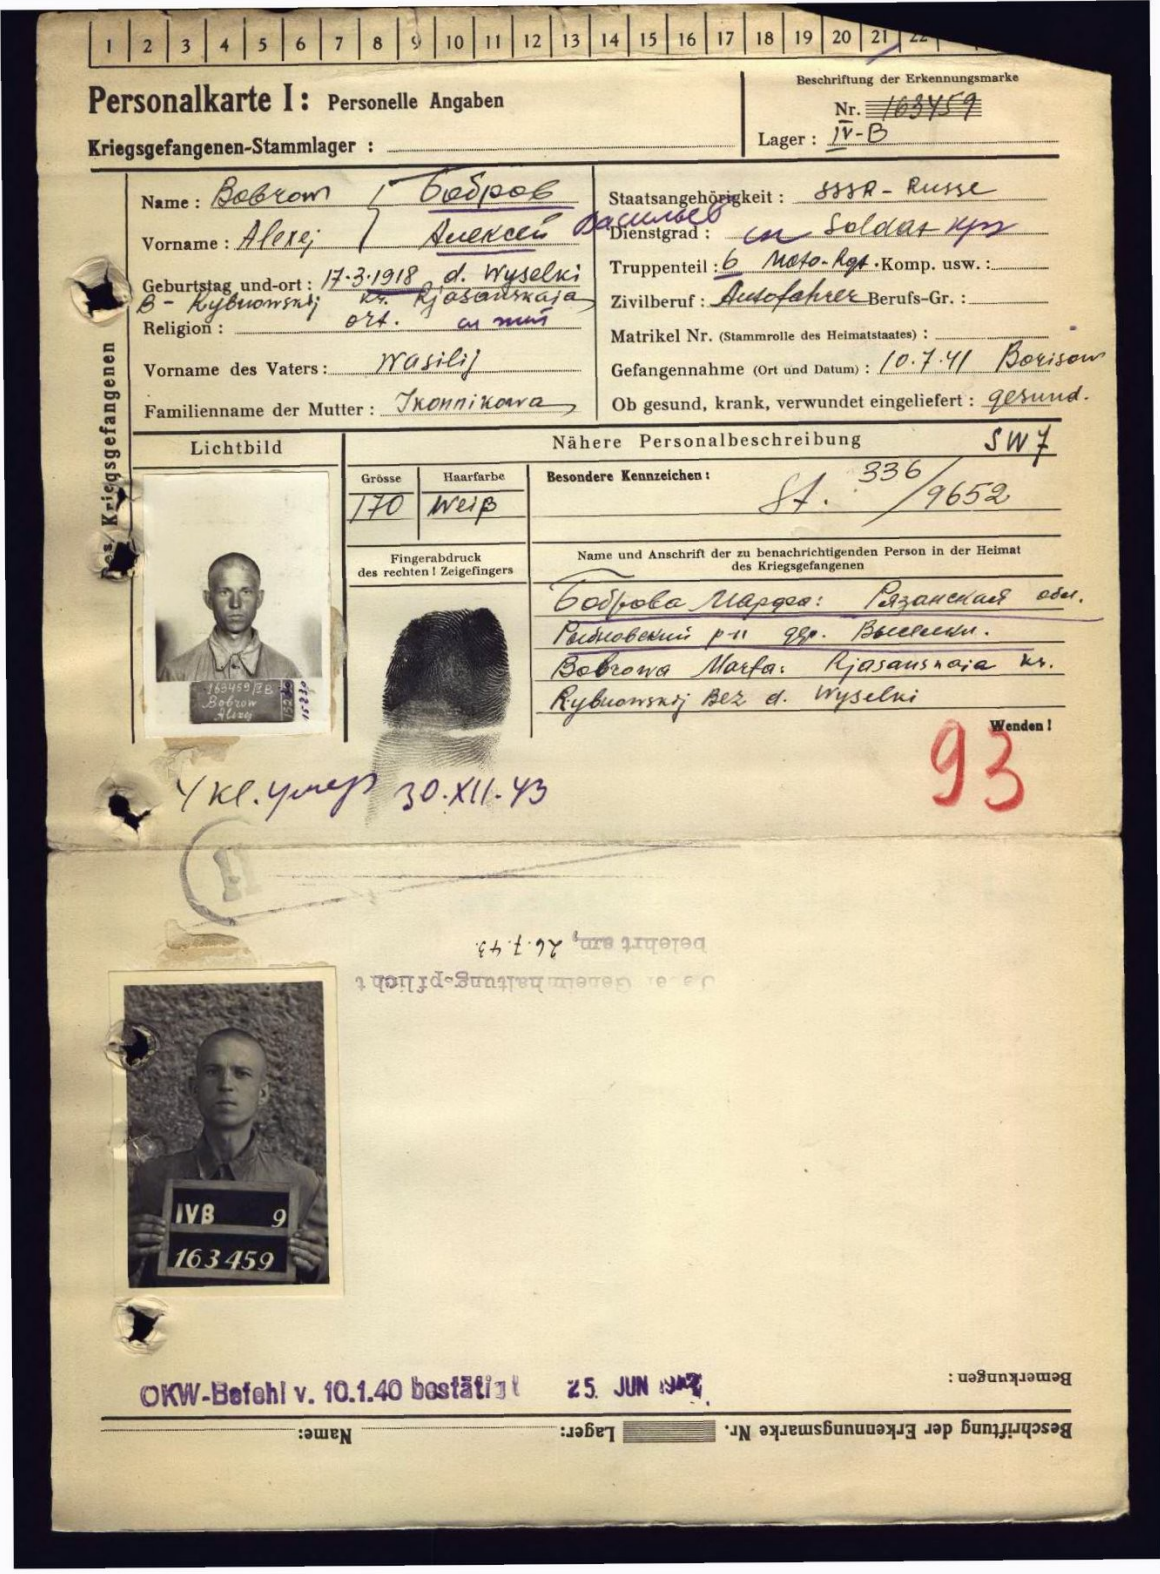 1 2 3 4 5 6 7 8 9 10 11 12 13 14 15 16 17 18 19 20 21 22
Personalkarte I: Personelle Angaben
Kriegsgefangenen-Stammlager :
Beschriftung der Erkennungsmarke
Nr. 163459
Lager : IV-B
Des Kriegsgefangenen
Name : Bobrow Бобров
Vorname : Alexej Алексей Васильев
Geburtstag und-ort : 17.3.1918 d. Wyselki
B- Rybnowskij kr. Rjasanskaja
Religion : ort.
Vorname des Vaters : Wasilij
Familienname der Mutter : Ikonnikowa
Staatsangehörigkeit : SSSR - Russe
Dienstgrad : Soldat кр
Truppenteil : 6 Moto-Rgt. Komp. usw. :
Zivilberuf : Autofahrer Berufs-Gr. :
Matrikel Nr. (Stammrolle des Heimatstaates) :
Gefangennahme (Ort und Datum) : 10.7.41 Borisow
Ob gesund, krank, verwundet eingeliefert : gesund.
Lichtbild
Nähere Personalbeschreibung SW7
Grösse
170
Haarfarbe
Weiß
Besondere Kennzeichen :
St. 336/9652
Fingerabdruck
des rechten ! Zeigefingers
Name und Anschrift der zu benachrichtigenden Person in der Heimat
des Kriegsgefangenen
Боброва Марфа: Рязанская обл.
Рыбновский р-н дер. Выселки.
Bobrowa Marfa: Rjasanskaja kr.
Rybnowskij Bez d. Wyselki
163459/IVB
Bobrow
Alexej
Wenden !
93
4 кл. 30.XII.43
Geheimhaltungspflicht
belehrt am, 26.7.43.
IVB 9
163459
OKW-Befehl v. 10.1.40 bestätigt 25. JUN 1942
Bemerkungen :
Beschriftung der Erkennungsmarke Nr. Lager: Name: